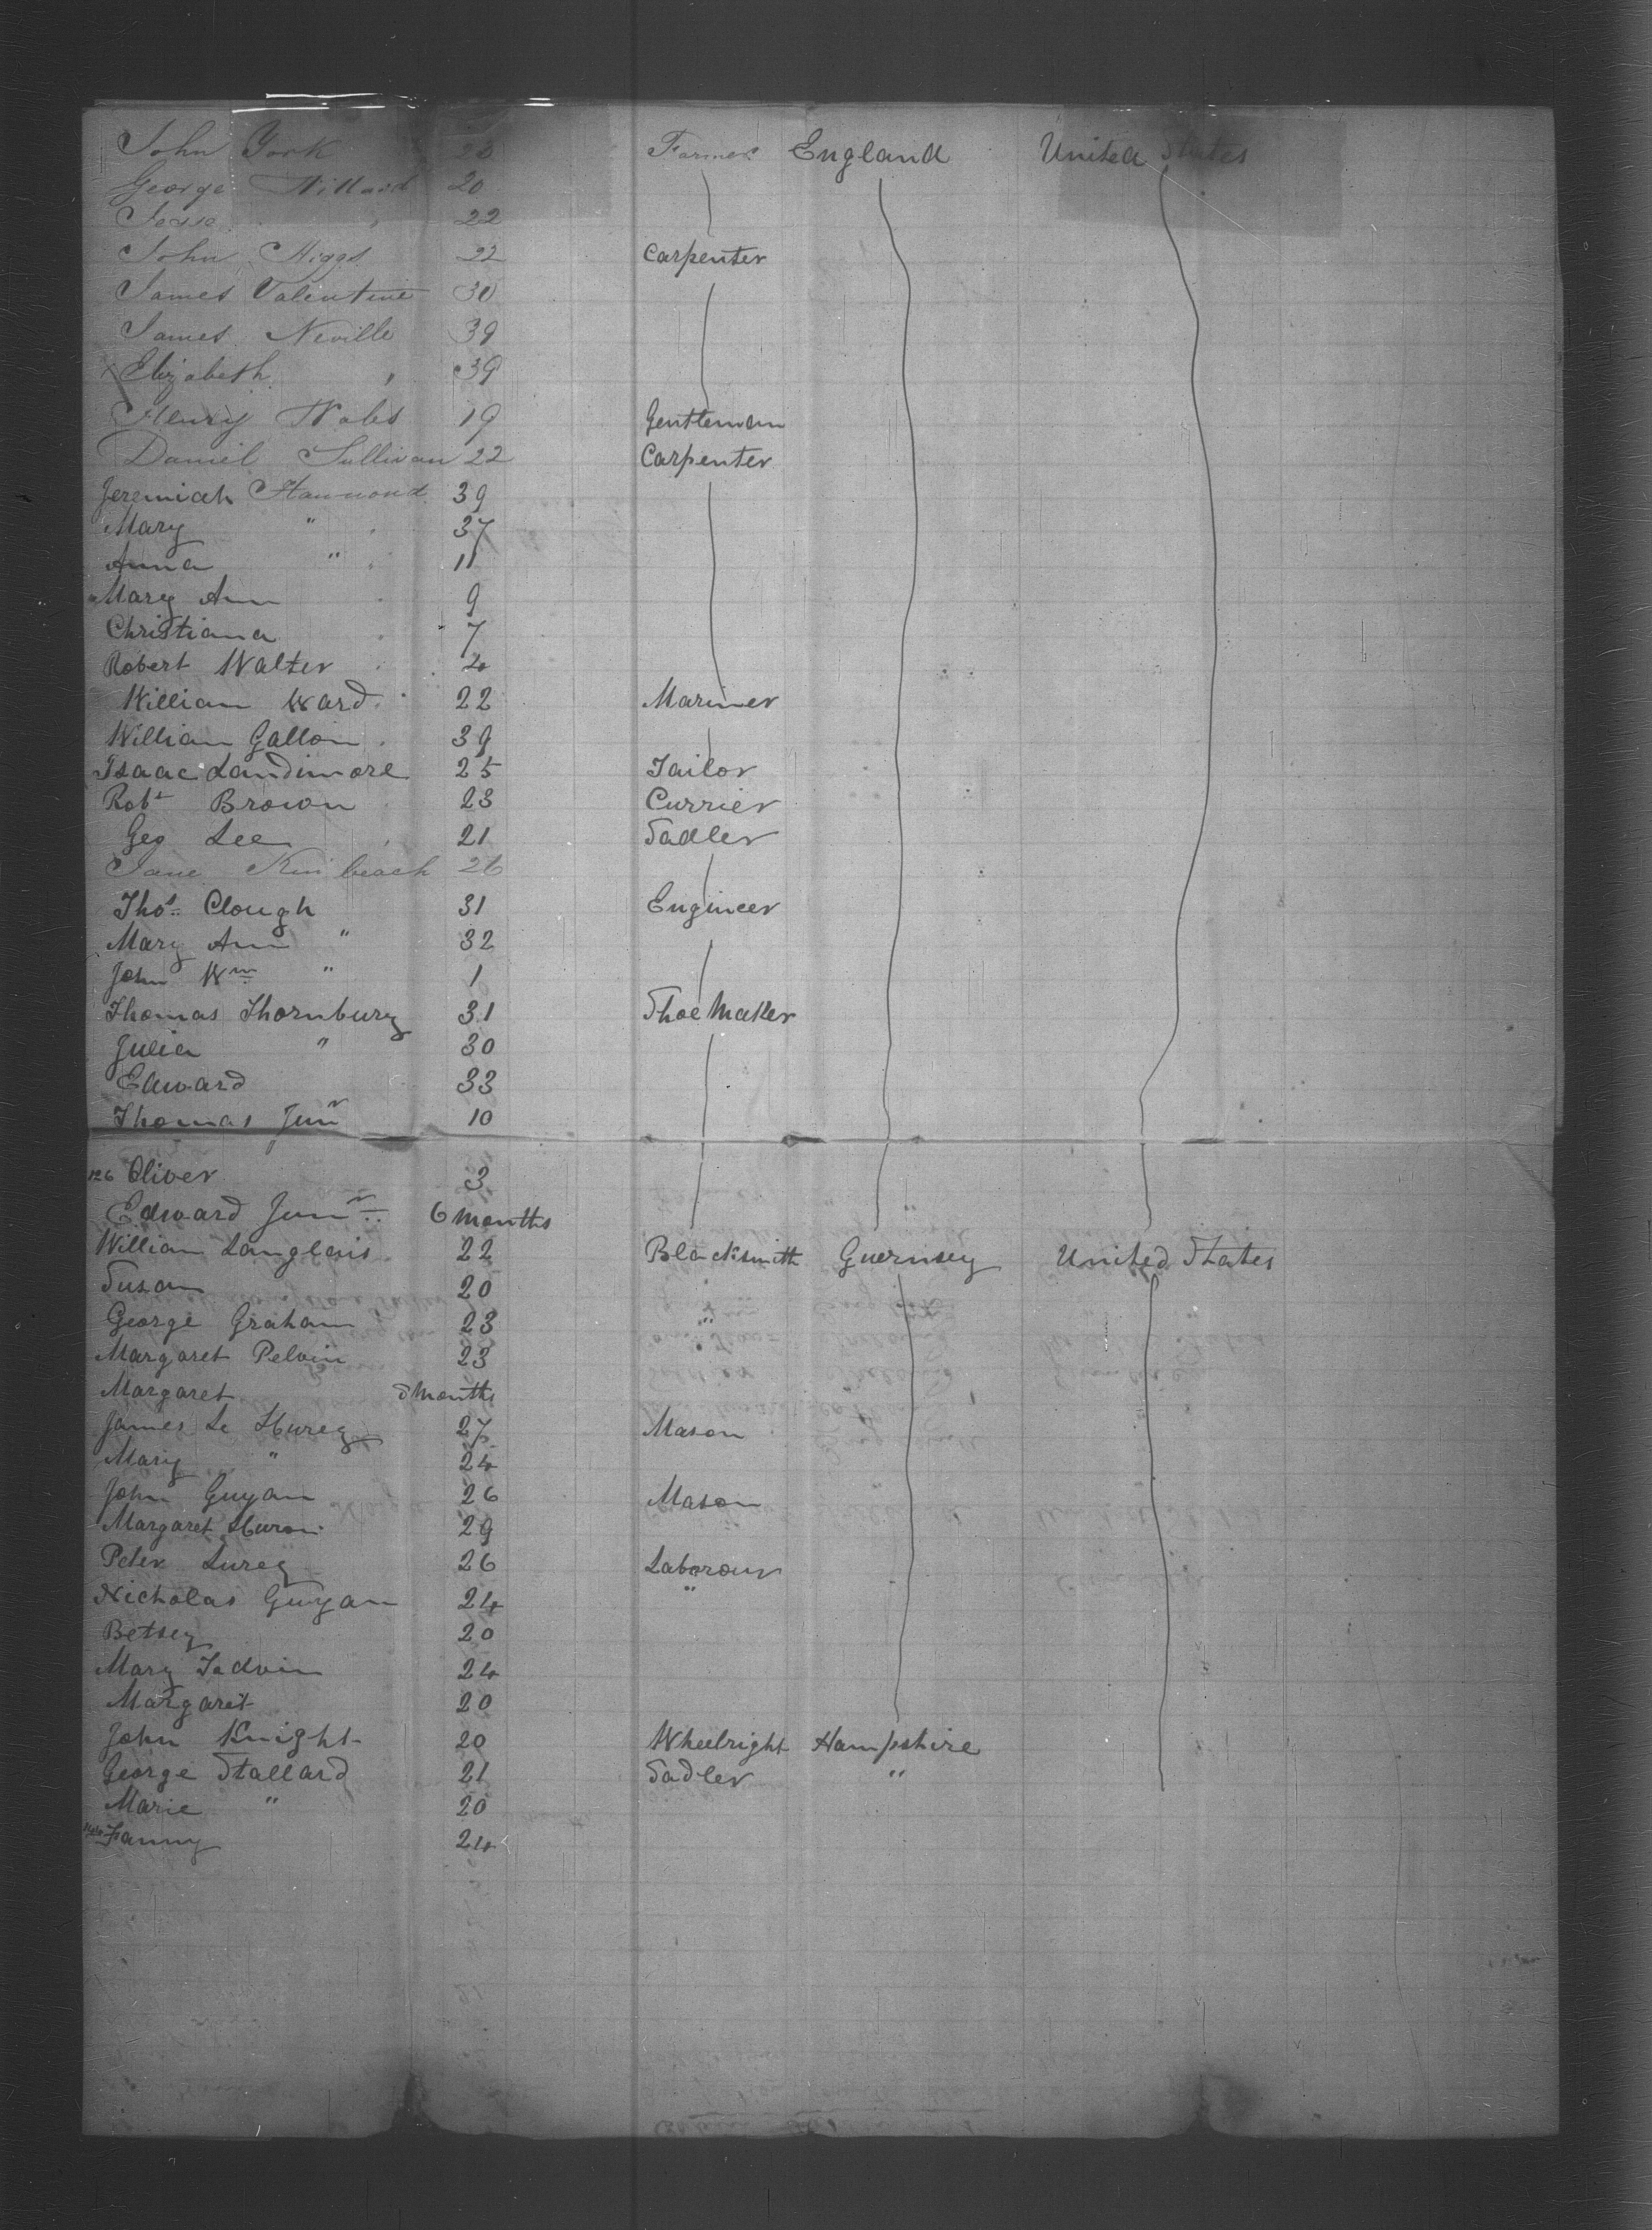 John York 26 Farmer England United States
George Willard 20
Jesse " 22
John Higgs 22 Carpenter
James Valentine 30
James Neville 39
Elizabeth " 39
Henry Wabs 19 Gentleman
Daniel Sullivan 22 Carpenter
Jeremiah Hammond 39
Mary " 37
Anna " 11
Mary Ann 9
Christiana 7
Robert Walter 4
William Ward 22 Mariner
William Gallon 39
Isaac Landimore 25 Tailor
Robt Brown 23 Currier
Geo Lee 21 Sadler
Jane Kimbeach 26
Thos Clough 31 Engineer
Mary Ann " 32
John Wm " 1
Thomas Thornbury 31 Shoe Maker
Julia " 30
Edward 33
Thomas Junr 10
126 Oliver 3
Edward Junr 6 months
William Langlois 22 Blacksmith Guernsey United States
Susan 20
George Graham 23 "
Margaret Pelvin 23
Margaret 8 months
James Le Hurey 27 Mason
Mary " 24
John Guyan 26 Mason
Margaret Huron 29
Peter Lurey 26 Laborour
Nicholas Guyan 24 "
Betsey 20
Mary Tadvin 24
Margaret 20
John Knight 20 Wheelright Hampshire
George Stallard 21 Sadler "
Marie " 20
Fanny 24